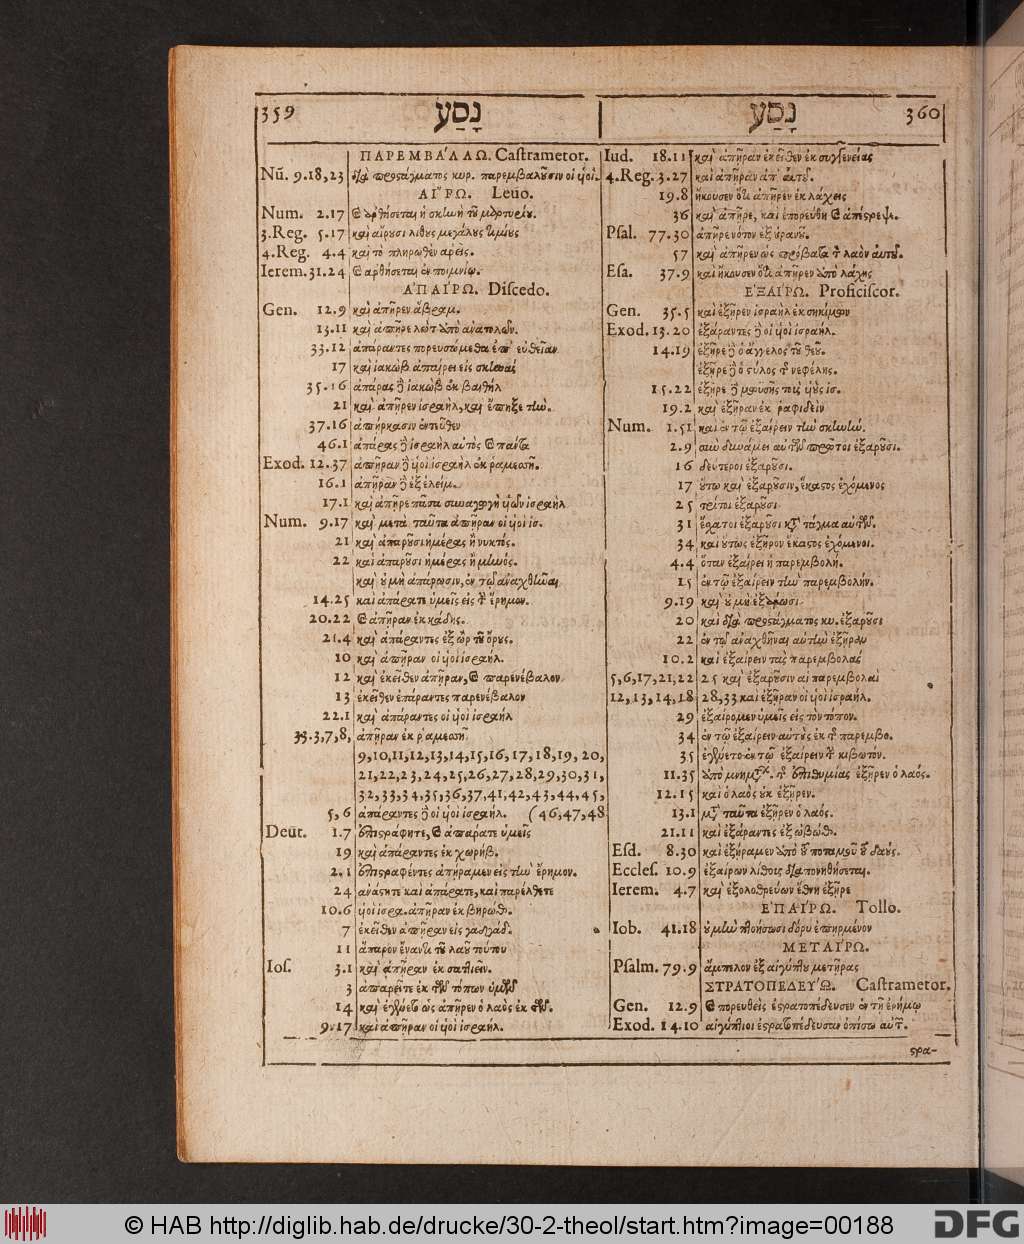 359 נָסַע
ΠΑΡΕΜΒΑΛΛΩ. Castrametor.
Nũ. 9.18,23 διὰ προςάγματος κυρ. παρεμβαλοῦσιν οἱ ὑοὶ.
ΑἼΡΩ. Leuo.
Num. 2.17 ἡ σκηνὴ τοῦ μαρτυρίου.
3.Reg. 5.17 καὶ αἴρουσι λίθους μεγάλους τιμίους
4.Reg. 4.4 καὶ τὸ πληρωθὲν ἀρεῖς.
Ierem. 31.24 ἀρθήσεται ἐν ποιμνίῳ.
ἈΠΑΊΡΩ. Discedo.
Gen. 12.9 καὶ ἀπῆρεν ἅβραμ.
13.11 καὶ ἀπῆρε λωτ ἀπὸ ἀνατολῶν.
33.12 ἀπάραντες πορευσώμεθα ἐπ' εὐθεῖαν
17 καὶ ἰακὼβ ἀπαίρει εἰς σκηνὰς
35.16 ἀπάρας δὲ ἰακὼβ ἐκ βαιθὴλ
21 καὶ ἀπῆρεν ἰσραὴλ, καὶ ἔπηξε τὴν.
37.16 ἀπήρκασιν ἐντεῦθεν
46.1 ἀπάρας δὲ ἰσραὴλ αὐτὸς καὶ πάντα
Exod. 12.37 ἀπῆραν δὲ οἱ ὑοὶ ἰσραὴλ ἐκ ῥαμεσσῆ.
16.1 ἀπῆραν δὲ ἐξ ἐλείμ.
17.1 καὶ ἀπῆρε πᾶσα συναγωγὴ ὑῶν ἰσραὴλ
Num. 9.17 καὶ μετὰ ταῦτα ἀπῆραν οἱ ὑοὶ ἰσ.
21 καὶ ἀπαροῦσι ἡμέρας ἢ νυκτός.
22 καὶ ἀπαροῦσι ἡμέρας ἢ μηνός.
καὶ οὐ μὴ ἀπάρωσιν, ἐν τῷ ἀναχθῆναι
14.25 καὶ ἀπάρατε ὑμεῖς εἰς τὴν ἔρημον.
20.22 καὶ ἀπῆραν ἐκ κάδης.
21.4 καὶ ἀπάραντες ἐξ ὢρ τοῦ ὄρους.
10 καὶ ἀπῆραν οἱ ὑοὶ ἰσραήλ.
12 καὶ ἐκεῖθεν ἀπῆραν, καὶ παρενέβαλον
13 ἐκεῖθεν ἐπάραντες παρενέβαλον
22.1 καὶ ἀπάραντες οἱ ὑοὶ ἰσραὴλ
33.3,7,8, ἀπῆραν ἐκ ῥαμεσσῆ
9,10,11,12,13,14,15,16,17,18,19,20,
21,22,23,24,25,26,27,28,29,30,31,
32,33,34,35,36,37,41,42,43,44,45,
5,6 ἀπάραντες δὲ οἱ ὑοὶ ἰσραήλ. (46,47,48
Deut. 1.7 ἐπιςράφητε, καὶ ἀπάρατε ὑμεῖς
19 καὶ ἀπάραντες ἐκ χωρήβ.
2.1 ἐπιςραφέντες ἀπήραμεν εἰς τὴν ἔρημον.
24 ἀνάςητε καὶ ἀπάρατε, καὶ παρέλθετε
10.6 ὑοὶ ἰσρα. ἀπῆραν ἐκ βηρώθ.
7 ἐκεῖθεν ἀπῆραν εἰς γαδγάδ.
11 ἄπαρον ἔναντι τοῦ λαοῦ τούτου
Ios. 3.1 καὶ ἀπῆραν ἐκ σαττιεῖν.
3 ἀπαρεῖτε ἐκ τῶν τόπων ὑμῶν
14 καὶ ἐγένετο ὡς ἀπῆρεν ὁ λαὸς ἐκ τῶν.
9.17 καὶ ἀπῆραν οἱ ὑοὶ ἰσραήλ.
נָסַע 360
Iud. 18.11 καὶ ἀπῆραν ἐκεῖθεν ἐκ συγγενείας
4.Reg. 3.27 καὶ ἀπῆραν ἀπ' αὐτοῦ.
19.8 ἤκουσεν ὅτι ἀπῆρεν ἐκ λάχεις
36 καὶ ἀπῆρε, καὶ ἐπορεύθη καὶ ἀπέςρεψε.
Psal. 77.30 ἀπῆρε νότον ἐξ οὐρανοῦ.
57 καὶ ἀπῆρεν ὡς πρόβατα τὸν λαὸν αὐτοῦ.
Esa. 37.9 καὶ ἤκουσεν ὅτι ἀπῆρεν ἀπὸ λάχης
ἘΞΑΊΡΩ. Proficiscor.
Gen. 35.5 καὶ ἐξῆρεν ἰσραὴλ ἐκ σηκίμων
Exod. 13.20 ἐξάραντες δὲ οἱ ὑοὶ ἰσραήλ.
14.19 ἐξῆρε δὲ ὁ ἄγγελος τοῦ θεοῦ.
ἐξῆρε δὲ ὁ ςύλος τῆς νεφέλης.
15.22 ἐξῆρε δὲ μωϋσῆς τοὺς ὑοὺς ἰσ.
19.2 καὶ ἐξῆραν ἐκ ῥαφιδεὶν
Num. 1.51 καὶ ἐν τῷ ἐξαίρειν τὴν σκηνὴν.
2.9 σὺν δυνάμει αὐτῶν πρῶτοι ἐξαροῦσι.
16 δεύτεροι ἐξαροῦσι.
17 οὕτω καὶ ἐξαροῦσιν, ἕκαςος ἐχόμενος
25 τρίτοι ἐξαροῦσι
31 ἔσχατοι ἐξαροῦσι κατὰ τάγμα αὐτῶν.
34 καὶ οὕτως ἐξῆρον ἕκαςος ἐχόμενοι.
4.4 ὅταν ἐξαίρει ἡ παρεμβολή.
15 ἐν τῷ ἐξαίρειν τὴν παρεμβολήν.
9.19 καὶ οὐ μὴ ἐξάρωσι
20 καὶ διὰ προςάγματος κυ. ἐξαροῦσι
22 ἐν τῷ ἀναχθῆναι αὐτὴν ἐξῆραν
10.2 καὶ ἐξαίρειν τὰς παρεμβολὰς
5,6,17,21,22 25 καὶ ἐξαροῦσιν αἱ παρεμβολαὶ
12,13,14,18 28,33 καὶ ἐξῆραν οἱ ὑοὶ ἰσραήλ.
29 ἐξαίρομεν ὑμεῖς εἰς τὸν τόπον.
34 ἐν τῷ ἐξαίρειν αὐτοὺς ἐκ τῆς παρεμβο.
35 ἐγένετο ἐν τῷ ἐξαίρειν τὴν κιβωτόν.
11.35 ἀπὸ μνημάτ. τῆς ἐπιθυμίας ἐξῆρεν ὁ λαός.
12.15 καὶ ὁ λαὸς οὐκ ἐξῆρεν.
13.1 μετὰ ταῦτα ἐξῆρεν ὁ λαός.
21.11 καὶ ἐξάραντες ἐξ ὠβώθ.
Esd. 8.30 καὶ ἐξήραμεν ἀπὸ τοῦ ποταμοῦ τοῦ δαούς.
Eccles. 10.9 ἐξαίρων λίθους διαπονηθήσεται.
Ierem. 4.7 καὶ ἐξολοθρεύων ἔθνη ἐξῆρε
ἘΠΑΊΡΩ. Tollo.
Iob. 41.18 οὐ μὴν ποιήσωσι δόρυ ἐπηρμένον
ΜΕΤΑΊΡΩ.
Psalm. 79.9 ἄμπελον ἐξ αἰγύπτου μετῆρας
ΣΤΡΑΤΟΠΕΔΕΎΩ. Castrametor.
Gen. 12.9 καὶ πορευθεὶς ἐςρατοπέδευσεν ἐν τῇ ἐρήμῳ
Exod. 14.10 αἰγύπτιοι ἐςρατοπέδευσαν ὀπίσω αὐτ.
ςρα-
© HAB http://diglib.hab.de/drucke/30-2-theol/start.htm?image=00188
DFG